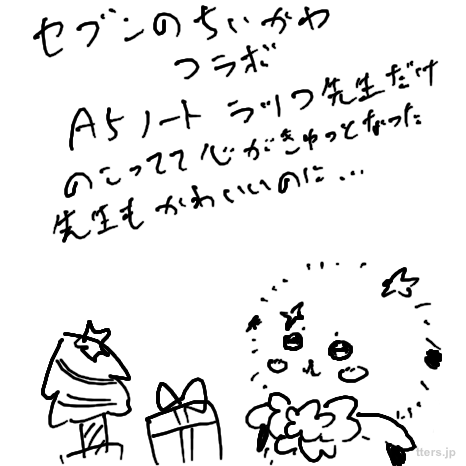 セブンのちいかわ
コラボ
A5ノート ラッコ先生だけ
のこってて心がきゅっとなった
先生もかわいいのに…
tters.jp